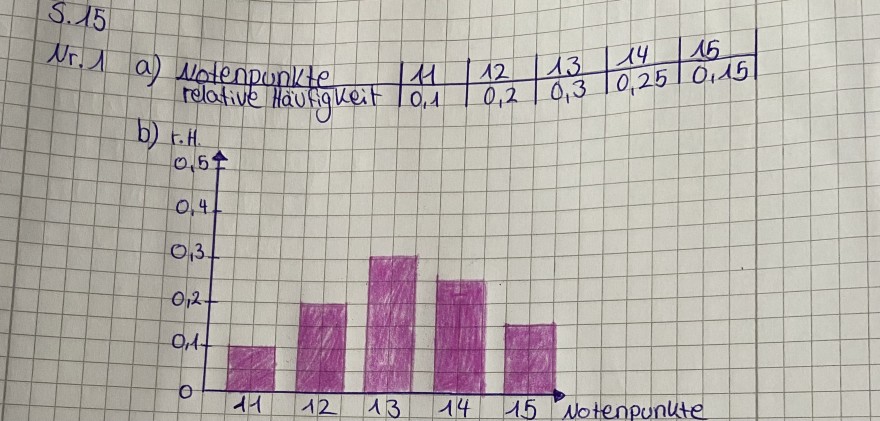 S. 15
Nr. 1 a) Notenpunkte 11 12 13 14 15
relative Häufigkeit 0,1 0,2 0,3 0,25 0,15
b) r.H.
0,5
0,4
0,3
0,2
0,1
0
11 12 13 14 15 Notenpunkte